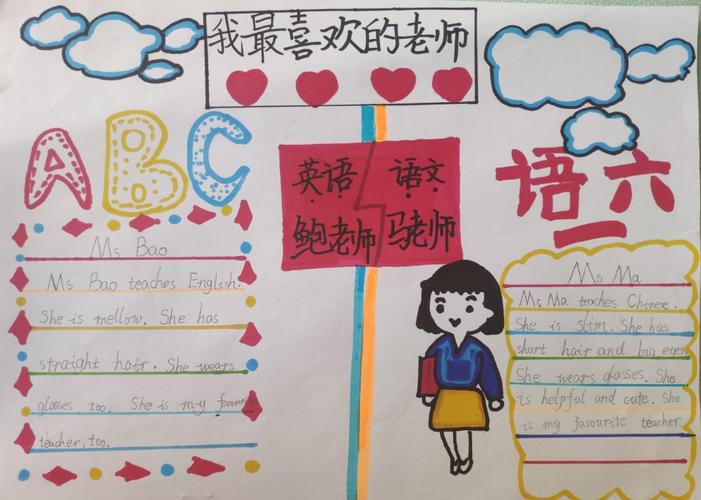 我最喜欢的老师
ABC
英语 语文
鲍老师 马老师
语文
Ms Bao
Ms Bao teaches English.
She is mellow. She has
straight hair. She wears
glasses too. She is my favourite
teacher, too.
Ms Ma
Ms Ma teaches Chinese.
She is slim. She has
short hair and big eyes.
She wears glasses. She
is helpful and cute. She
is my favourite teacher.